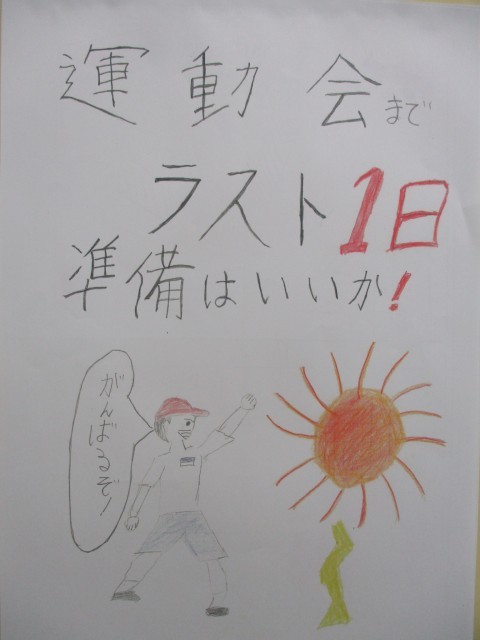 運動会まで
ラスト1日
準備はいいか!
がんばるぞ!